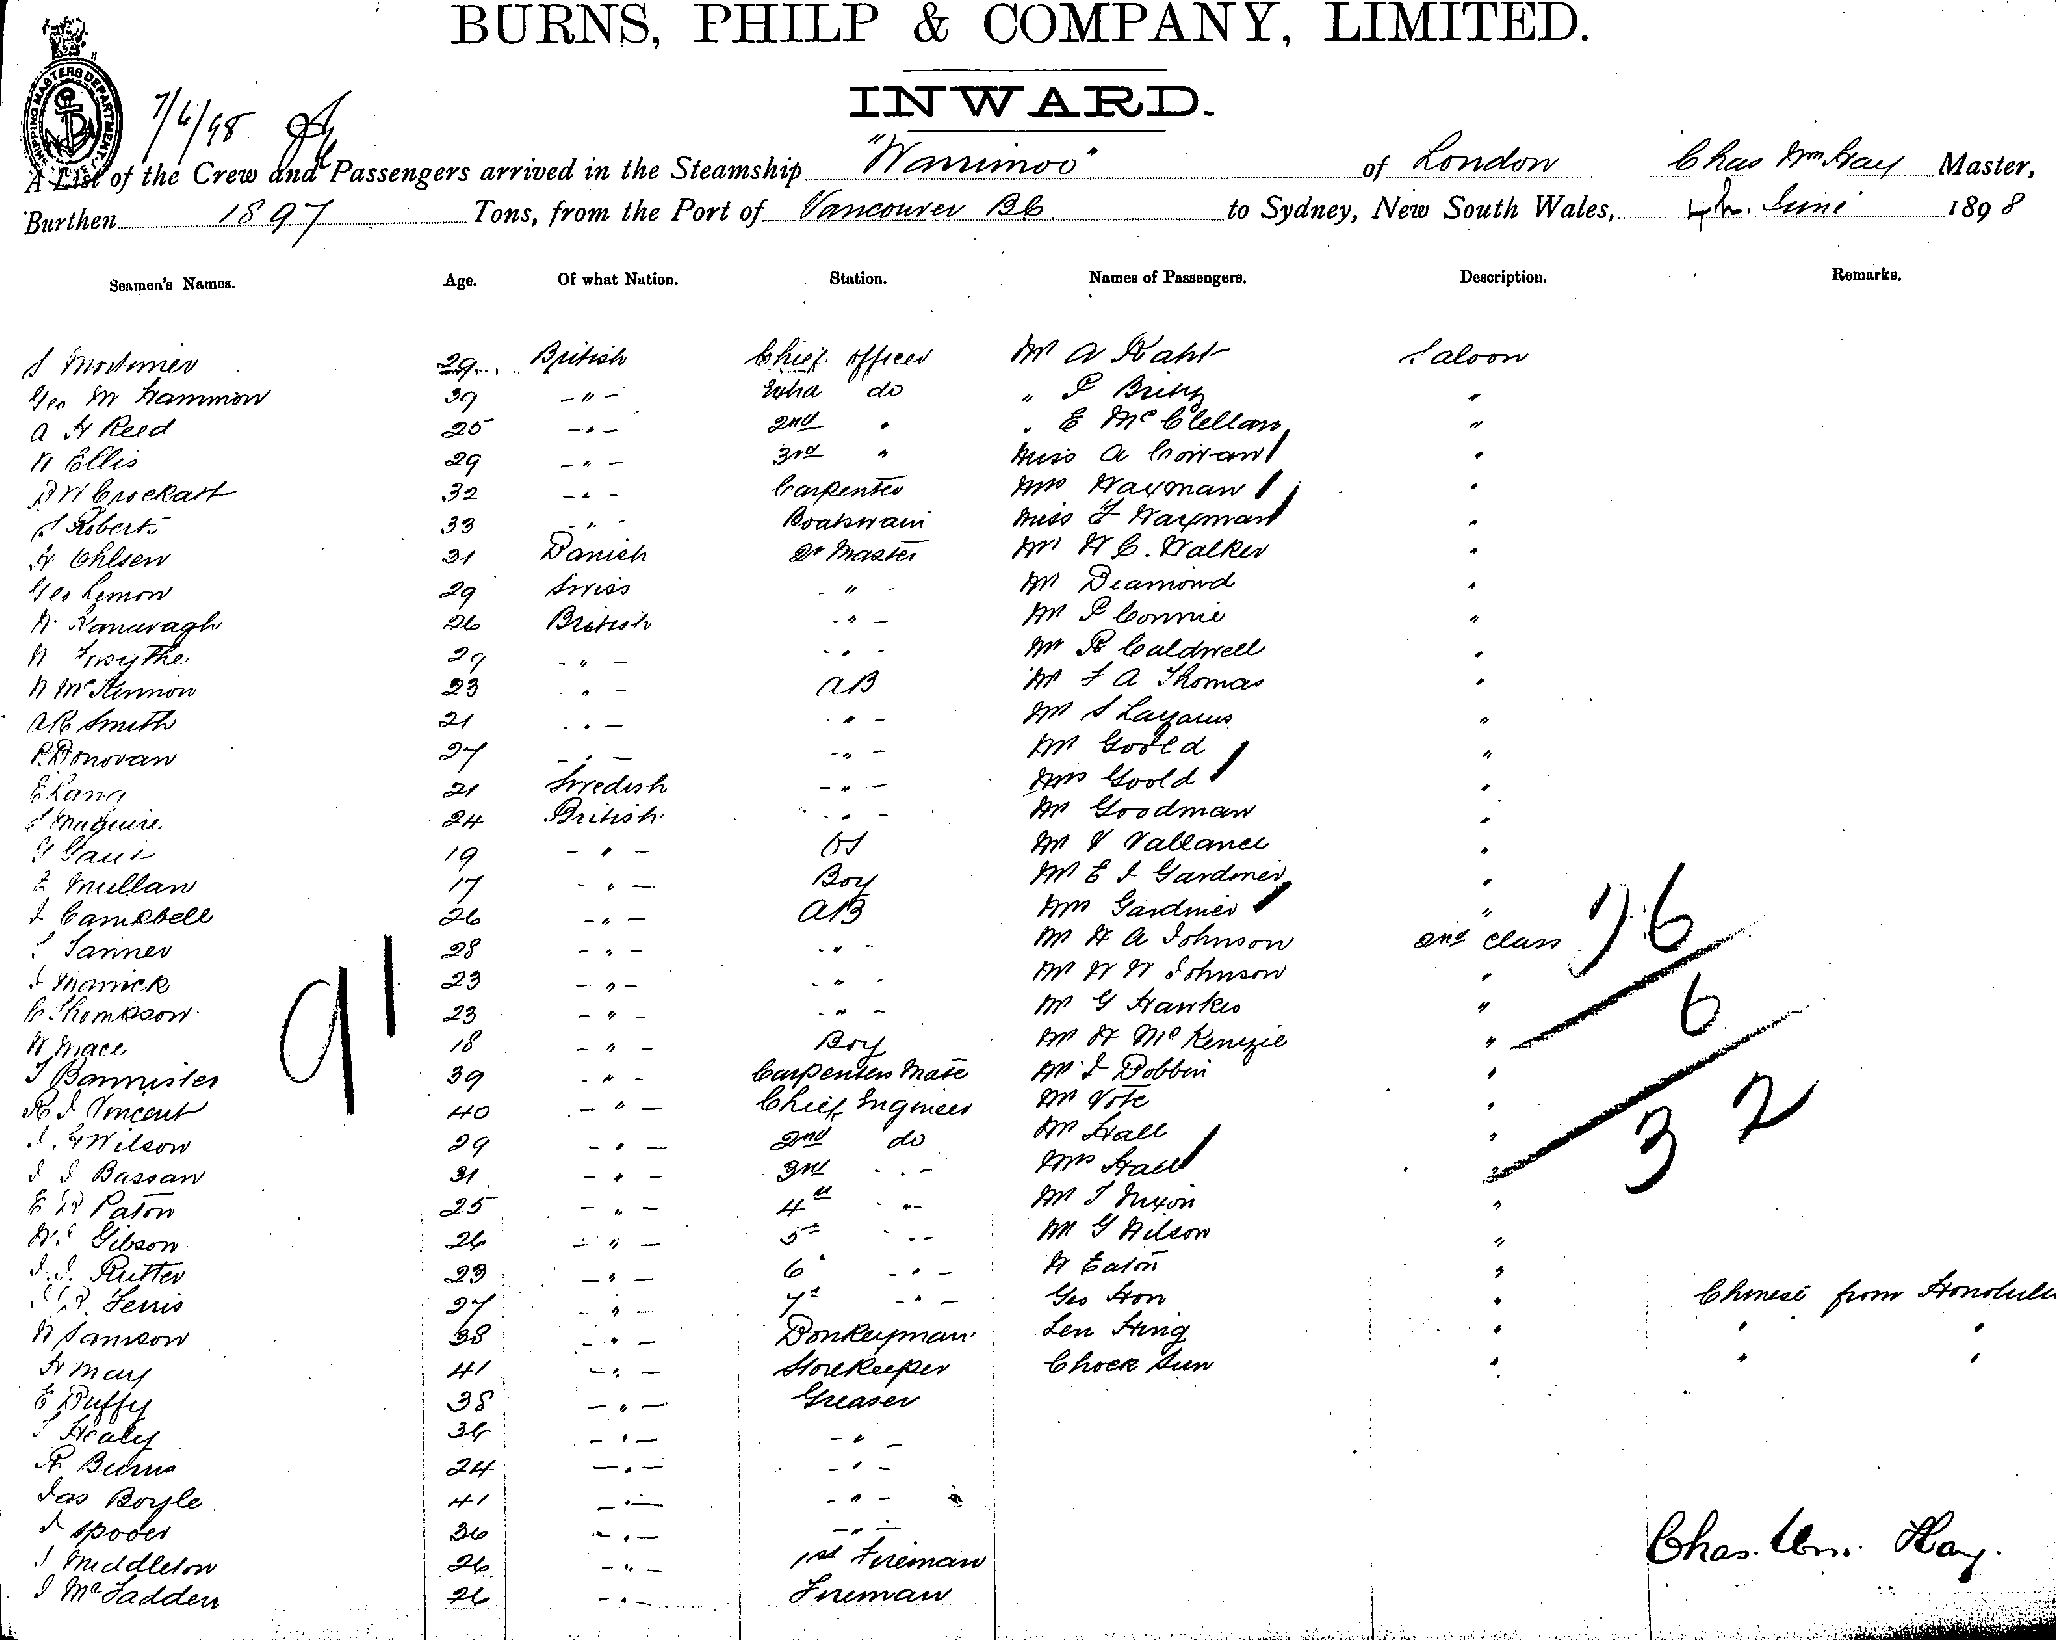 BURNS, PHILP & COMPANY, LIMITED.
INWARD.
SHIPPING MASTERS DEPARTMENT
7/6/98
A List of the Crew and Passengers arrived in the Steamship "Warrimoo" of London Chas Wm Hay Master,
Burthen 1897 Tons, from the Port of Vancouver BC to Sydney, New South Wales, June 1898
Seamen's Names. Age. Of what Nation. Station. Names of Passengers. Description. Remarks.
S Mortimer 29 British Chief officer Mr A Kaht Saloon
Geo M Hammon 39 - " - Extra do " P "
A H Reed 25 - " - 2nd " " E McClellan "
W Ellis 29 - " - 3rd " Miss A Cowan "
Crockart 32 - " - Carpenter Mrs Waxman "
S Roberts 33 - " - Boatswain Miss F Waxman "
H Ohlsen 31 Danish Qr Master Mr W C. Walker "
Geo Lemon 29 Swiss " Mr Diamond "
W Kanavagh 26 British " Mr P Connie "
W Forsythe 29 - " - " Mr R Caldwell "
N McKinnon 23 " - AB Mr F A Thomas "
A R Smith 21 " - " Mr S Lazarus "
P Donovan 27 - " - " Mr Goold "
E Lang 21 Swedish - " - Mrs Goold "
S Maguire 24 British " Mr Goodman "
19 - " - OS Mr V Vallance "
Mullan 17 - " - Boy Mr E J Gardiner "
J Campbell 26 - " - AB Mrs Gardiner "
Tanner 28 - " - " Mr H A Johnson 2nd class 26
23 - " - " Mr W W Johnson "
C Thompson 23 - " - " Mr G Hawkes " 6
W Mace 18 - " - Boy Mr H McKenzie "
T Bannister 39 - " - Carpenters Mate Mr J Dobbin " 32
91
R J Vincent 40 - " - Chief Engineer Mr Vote "
J. H Wilson 29 - " - 2nd do Mr Hall "
J J Bassan 31 - " - 3rd " Mrs Hall "
E Paton 25 - " - 4th " Mr T Nixon "
W. Gibson 26 - " - 5th " Mr G Wilson "
J. J. Rutter 23 - " - 6 " W Eaton "
Ferris 27 - " - 7th " Geo Hon " Chinese from Honolulu
W Samson 38 - " - Donkeyman Len Hing " " "
H May 41 - " - Storekeeper Chock Sun " " "
E Duffy 38 - " - Greaser
Healy 36 - " - - " -
R Burns 24 - " - - " -
Jas Boyle 41 - " - - " -
J Spooer 36 - " - - " -
J Middleton 26 - " - 1st Fireman
J McFadden 26 - " - Fireman
Chas. Wm. Hay.